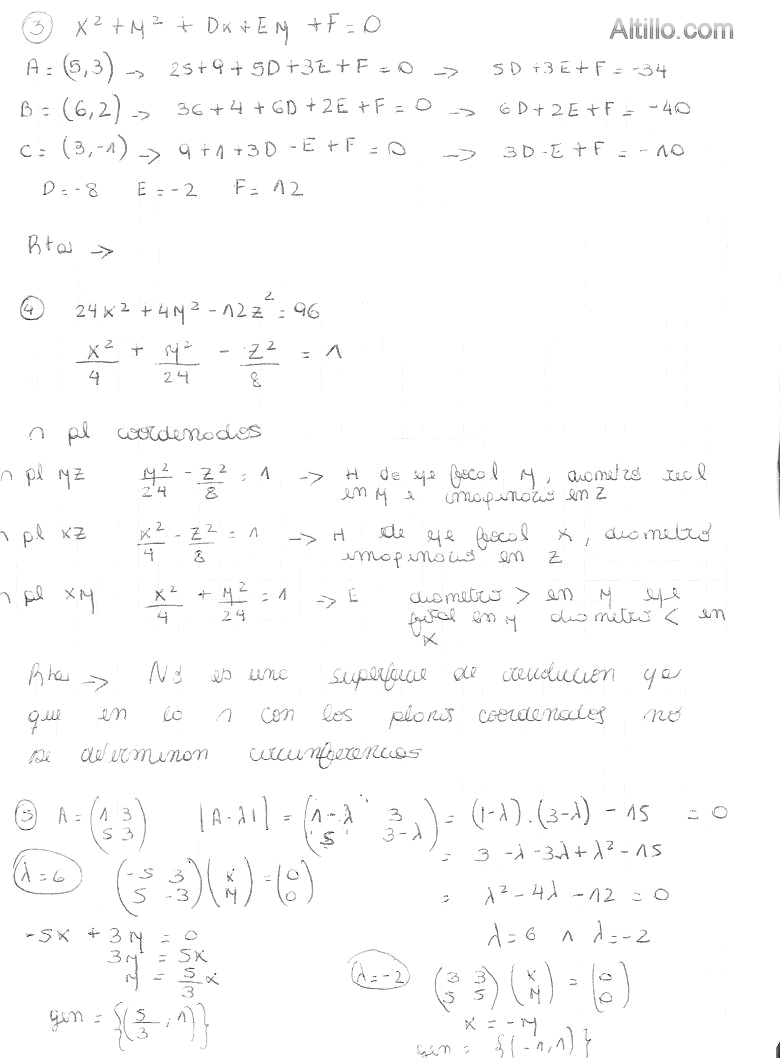 Altillo.com
③ x² + y² + Dx + Ey + F = 0
A = (5,3) → 25+9+5D+3E+F=0 → 5D+3E+F=-34
B = (6,2) → 36+4+6D+2E+F=0 → 6D+2E+F=-40
C = (3,-1) → 9+1+3D-E+F=0 → 3D-E+F=-10
D=-8 E=-2 F=12
Rta →
④ 24x² + 4y² - 12z² = 96
x²/4 + y²/24 - z²/8 = 1
∩ pl coordenados
∩ pl yz y²/24 - z²/8 = 1 → H de eje focal y, diametro real
en y e imaginario en z
∩ pl xz x²/4 - z²/8 = 1 → H de eje focal x, diametro
imaginario en z
∩ pl xy x²/4 + y²/24 = 1 → E diametro > en y eje
focal en y diametro < en
x
Rta → No es una superficie de revolucion ya
que en la ∩ con los planos coordenados no
se determinan circunferencias
⑤ A = (1 3 / 5 3) |A-λI| = (1-λ 3 / 5 3-λ) = (1-λ).(3-λ) - 15 = 0
= 3 -λ-3λ+λ²-15
λ=6 (-5 3 / 5 -3)(x / y) = (0 / 0)
= λ²-4λ-12=0
-5x + 3y = 0
λ=6 ∧ λ=-2
3y = 5x
y = 5/3 x
λ=-2 (3 3 / 5 5)(x / y) = (0 / 0)
gen = {(5/3, 1)}
x = -y
gen = {(-1,1)}